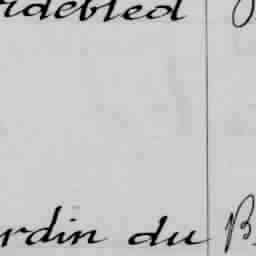 idebled
rdin du B